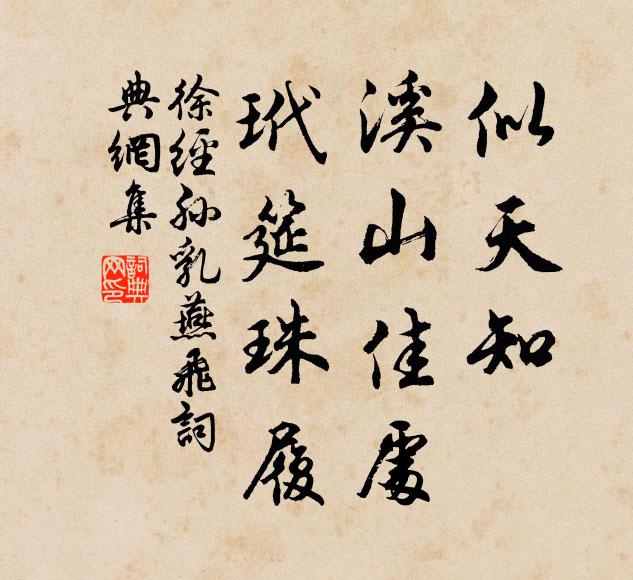 似天知
溪山佳處
玳筵珠履
徐經孫乳燕飛詞
典網集
詞典
网印